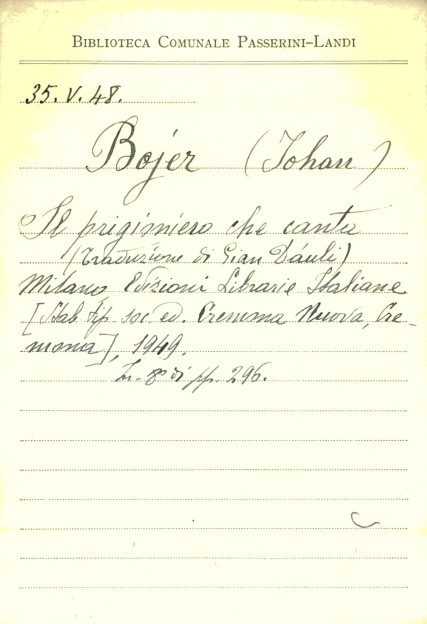 BIBLIOTECA COMUNALE PASSERINI-LANDI
35. V. 48.
Bojer (Johan)
Il prigioniero che canta
(Traduzione di Gian Dáuli)
Milano Edizioni Librarie Italiane
[Stab. tip. soc. ed. Cremona Nuova, Cre-
mona], 1949.
In-8º di pp. 296.